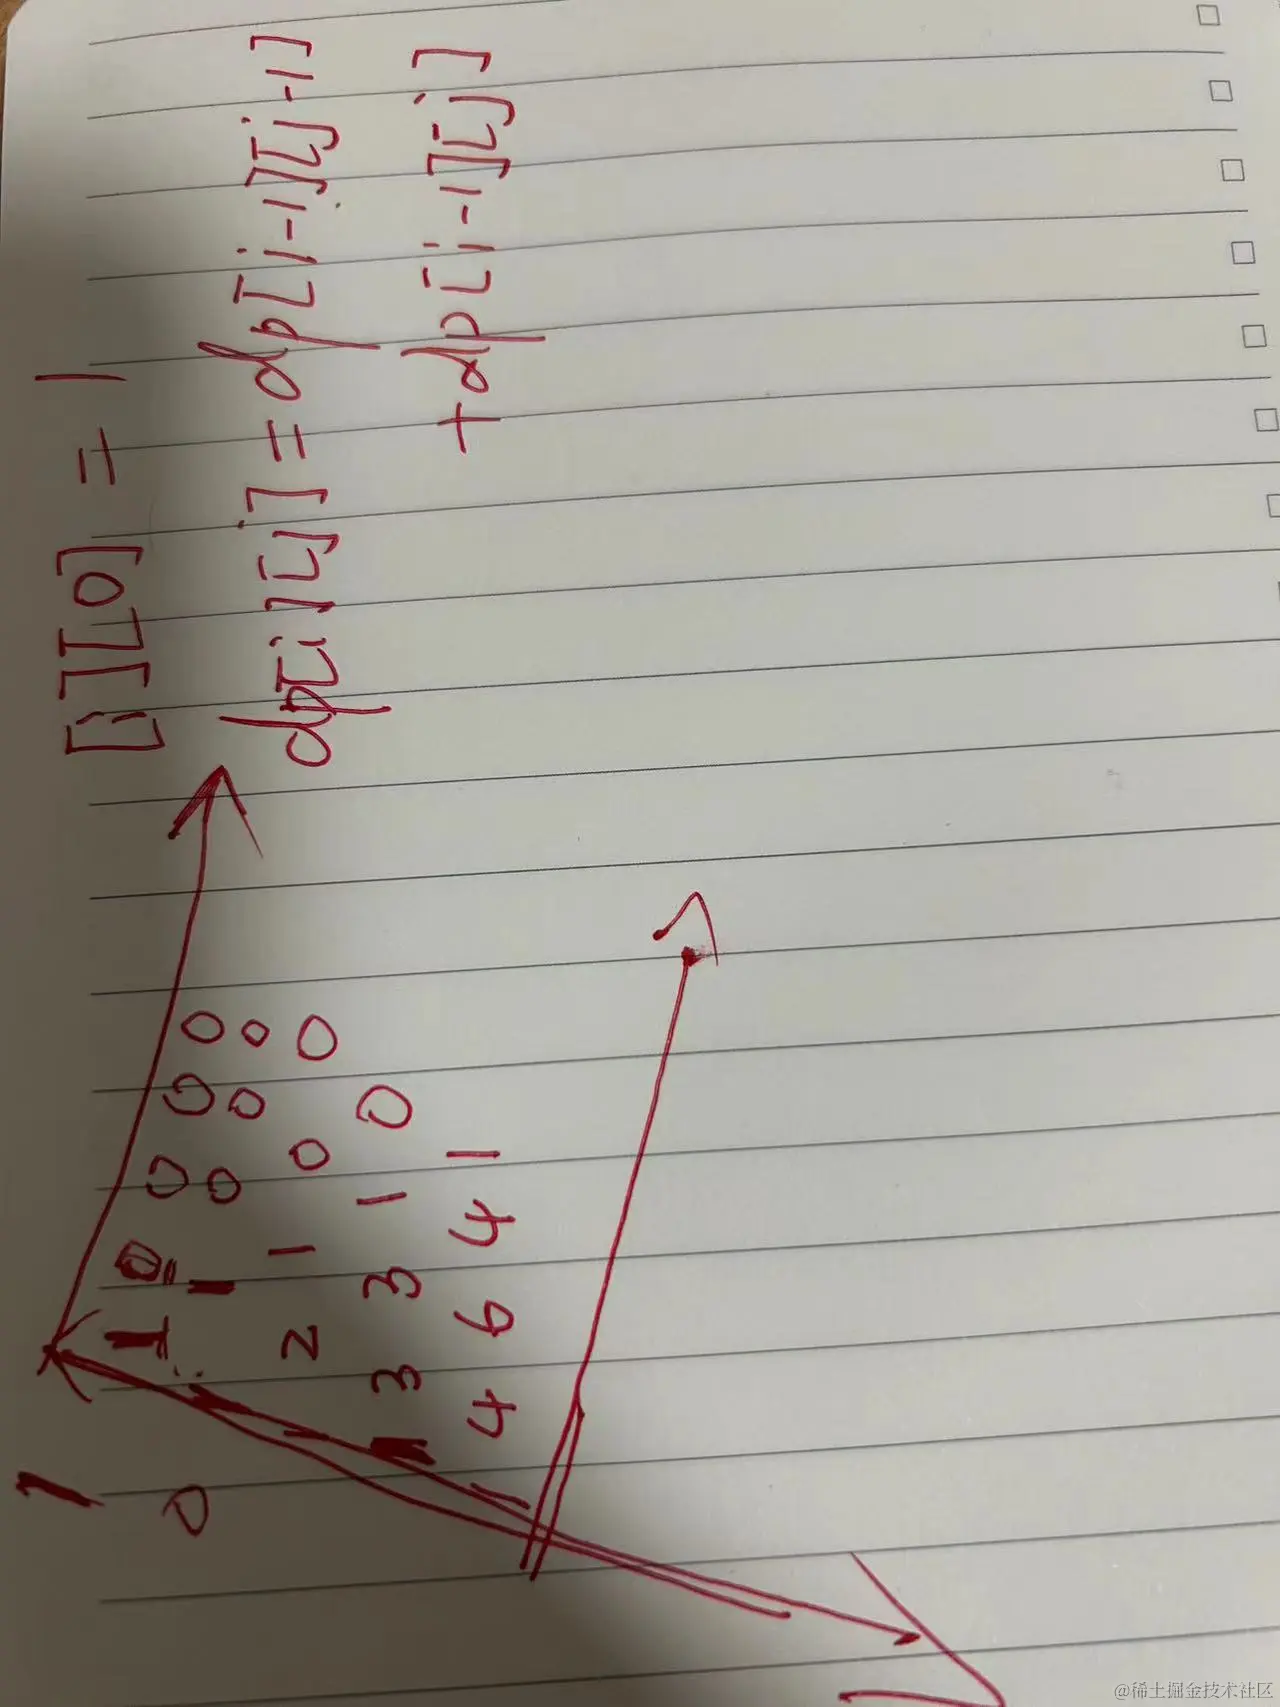 [i][0] = 1
dp[i][j] = dp[i-1][j-1]
+dp[i-1][j]
1
1 0 0 0 0
0
1 1 0 0 0
1 2 1 0 0
1 3 3 1 0
1 4 6 4 1
@稀土掘金技术社区